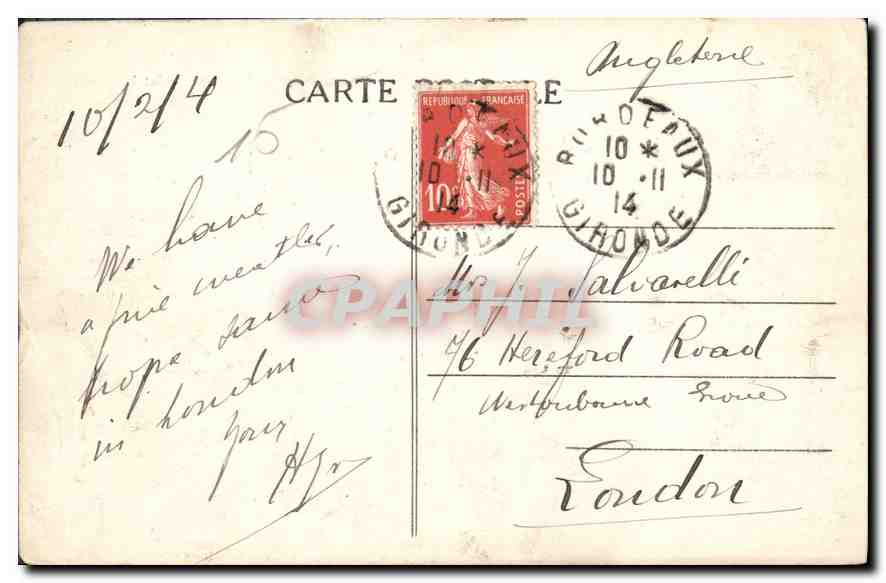 CARTE POSTALE
Angleterre
10/2/4
15
REPUBLIQUE FRANÇAISE
10c
POSTES
BORDEAUX
10 *
10 . 11
14
GIRONDE
BORDEAUX
10 *
10 . 11
14
GIRONDE
We have
a fine weather,
hope same
in London
Yours
Mrs J. Salvarelli
76 Hereford Road
Westbourne Grove
London
CPAPHIL